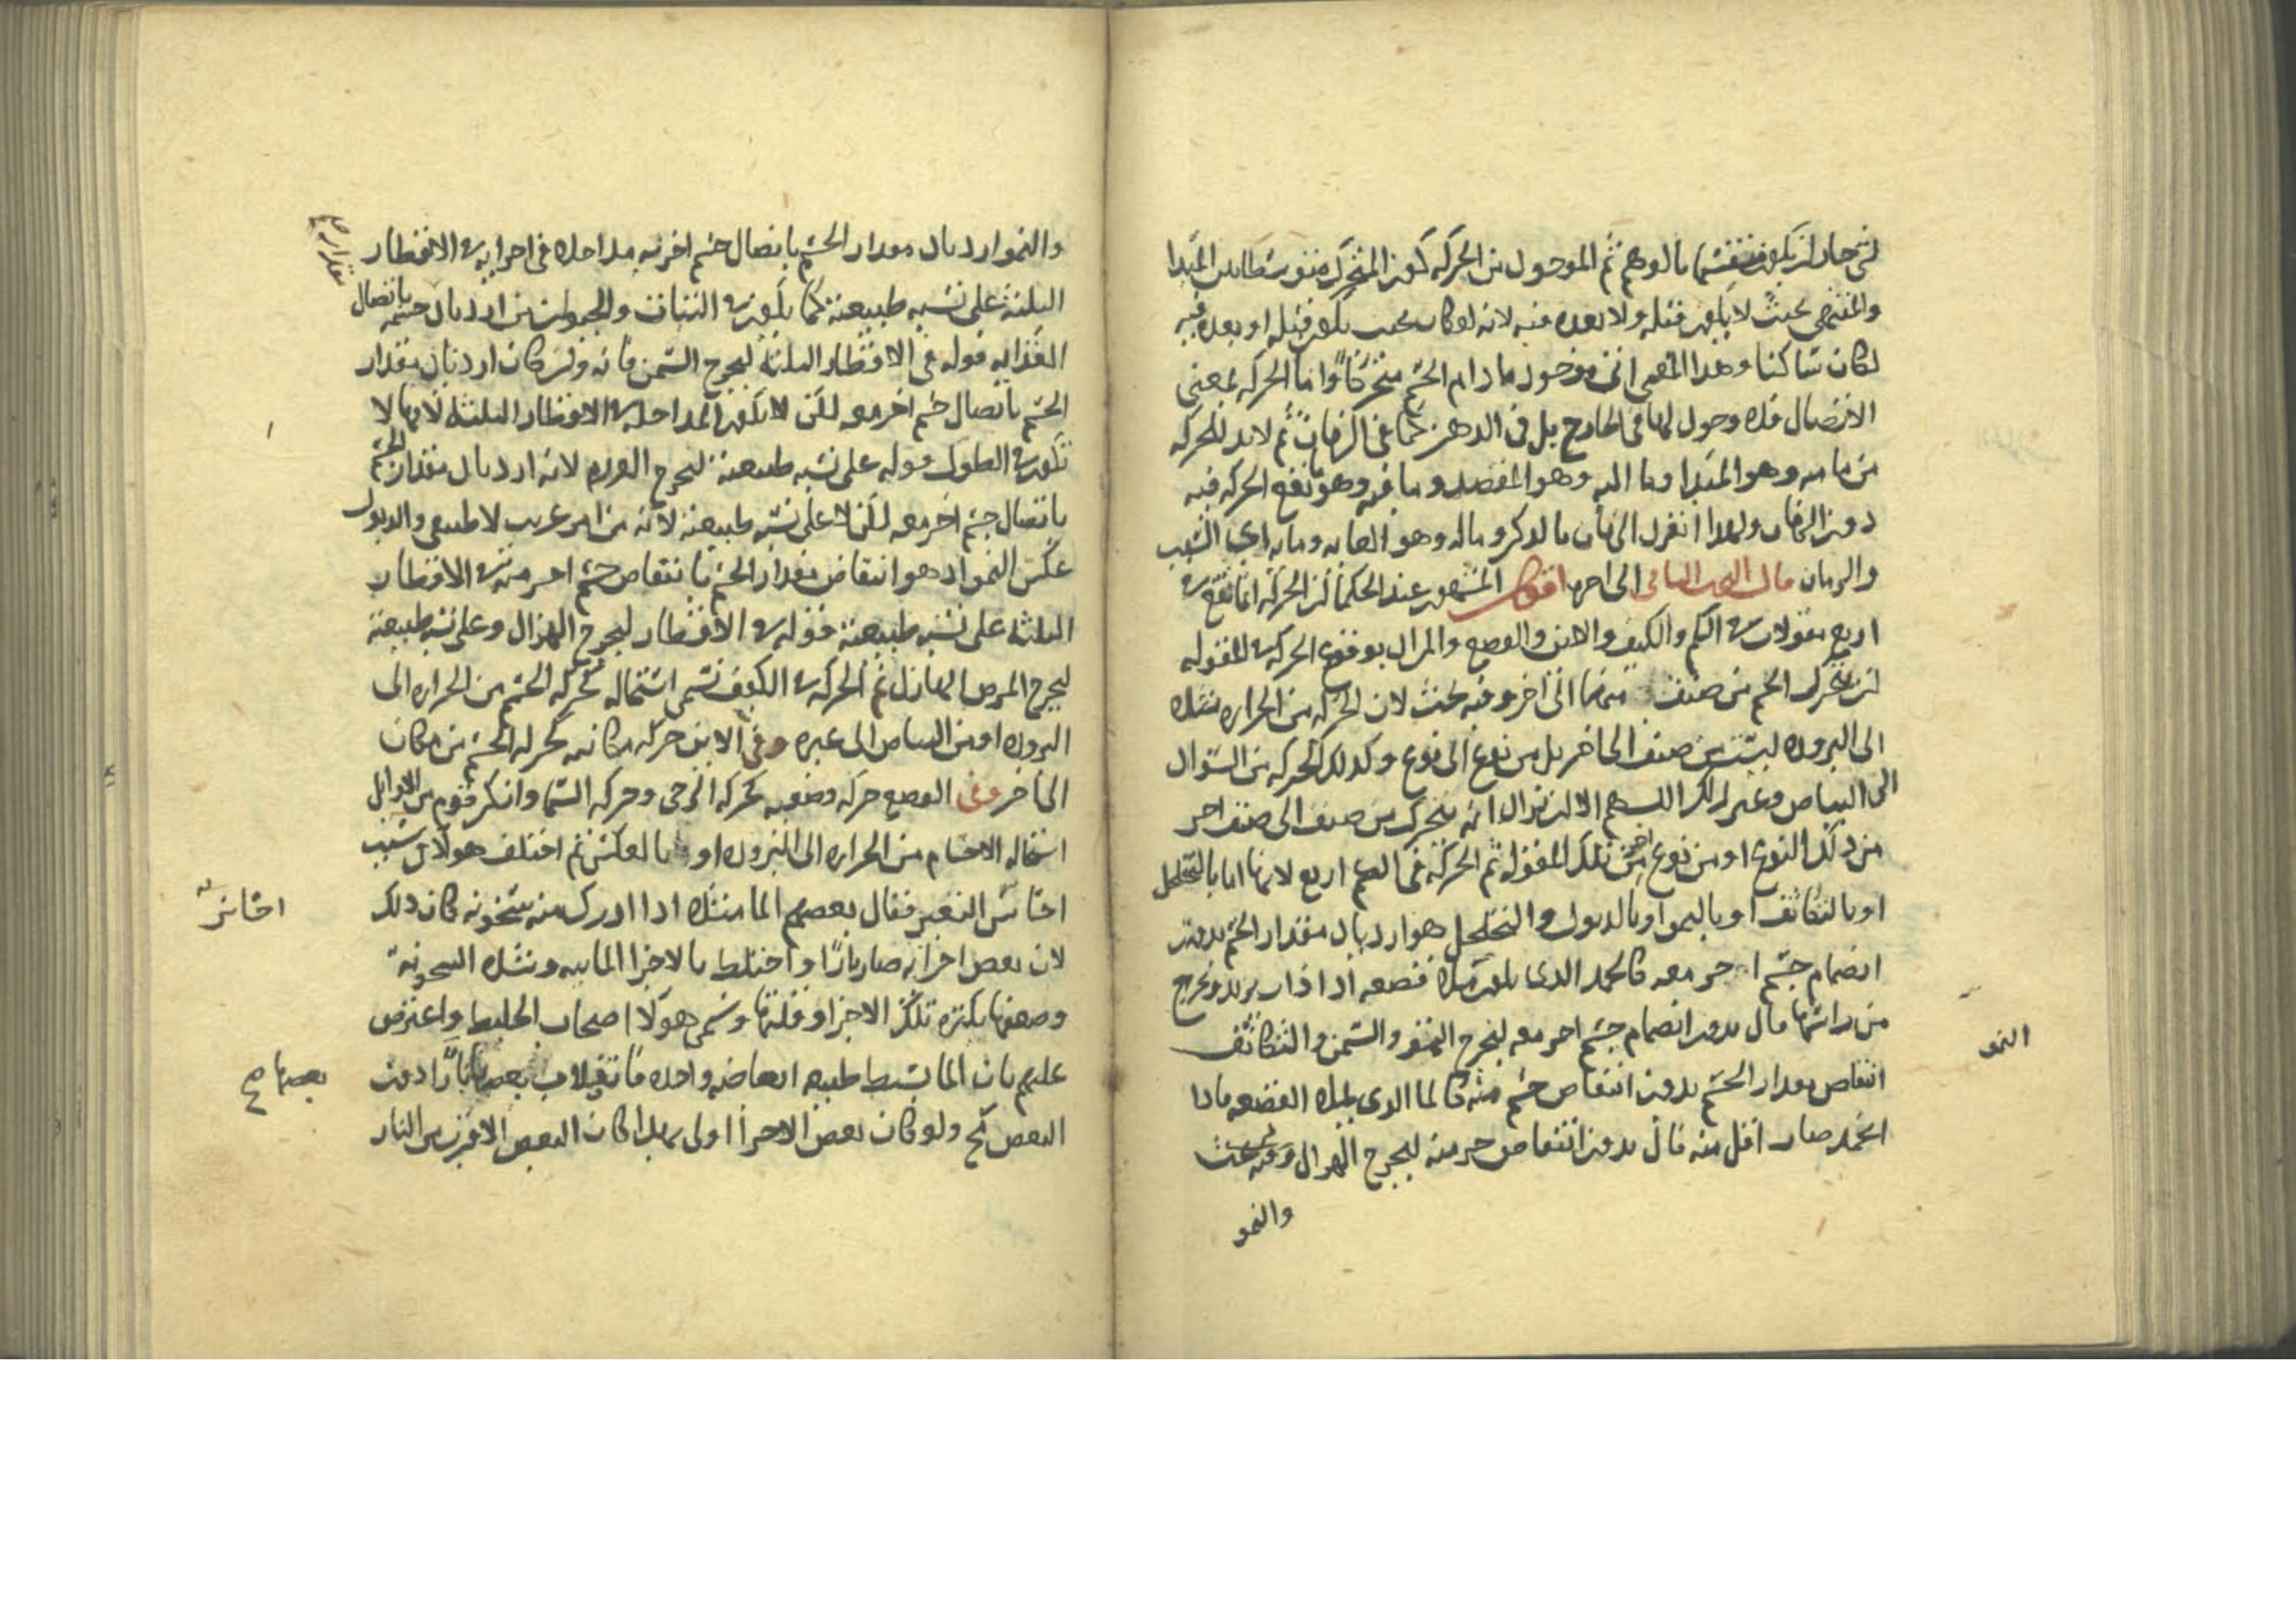 لشی جاز ان یکون منقسما بالوهم ثم الموجود من الحرکة کون المتحرک متوسطا بین المبدا
والمنتهی بحیث لا یکون قبله ولا بعده فیه لانه لو کان بحیث یکون قبله او بعده فیه
لکان ساکنا وهذا المعنی انی موجود ما دام الجسم متحرکا واما الحرکة بمعنی
الاتصال فلا وجود لها فی الخارج بل فی الذهن کما فی الزمان ثم لا بد للحرکة
من ما منه وهو المبدا وما الیه وهو المقصد وما فیه وهو تقع الحرکة فیه
دون الزمان ولهذا انفرد الزمان بالذکر وماله وهو الغایة وما به ای السبب
والزمان قال البحث الثانی الی اخره اقول المشهور عند الحکما ان الحرکة انما تقع فی
اربع مقولات فی الکم والکیف والاین والوضع والمراد بوقوع الحرکة فی المقولة
ان یتحرک الجسم من صنف منها الی اخر وفیه بحث لان الحرکة من الحرارة مثلا
الی البرودة لیست من صنف الی اخر بل من نوع الی نوع وکذلک الحرکة من السواد
الی البیاض وغیر ذلک اللهم الا ان یراد انه یتحرک من صنف الی صنف اخر
من ذلک النوع او من نوع اخر من تلک المقولة ثم الحرکة فی الکم اربع لانها اما بالتخلخل
او بالتکاثف او بالنمو او بالذبول والتخلخل هو ازدیاد مقدار الجسم بدون
انضمام جسم اخر معه کالجمد الذی یکون ملأ قصعة اذا ذاب یزید ویخرج
من راسها قال بدون انضمام جسم اخر معه لیخرج النمو والسمن والتکاثف
النمو
انتقاص مقدار الجسم بدون انتقاص جسم منه کالما الذی یملأ القصعة فاذا
انجمد صار اقل منه قال بدون انتقاص جزء منه لیخرج الهزال وفیه بحث
والنمو
والنمو ازدیاد مقدار الجسم باتصال جسم اخر به مداخلة فی اجزایه فی الاقطار
الثلثة علی نسبة طبیعته کما یکون فی النبات والحیوان من ازدیاد جسمه باتصال
الغذا به قوله فی الاقطار الثلثة لیخرج السمن فانه وان کان ازدیاد مقدار
الجسم باتصال جسم اخر معه لکن لا یکون المداخلة فی الاقطار الثلثة لانها لا
تکون فی الطول قوله علی نسبة طبیعته لیخرج الورم لانه ازدیاد مقدار الجسم
باتصال جسم اخر معه لکن لا علی نسبة طبیعته لانه من امر غریب لا طبیعی والذبول
عکس النمو اذ هو انتقاص مقدار الجسم بانتقاص جسم اخر منه فی الاقطار
الثلثة علی نسبة طبیعته قوله فی الاقطار لیخرج الهزال وعلی نسبة طبیعته
لیخرج المرض الهازل ثم الحرکة فی الکیف تسمی استحالة کحرکة الجسم من الحرارة الی
البرودة او من البیاض الی غیره وفی الاین حرکة مکانیة کحرکة الجسم من مکان
الی اخر وفی الوضع حرکة وضعیة کحرکة الرحی وحرکة السما وانکر قوم من الاوایل
استحالة الاجسام من الحرارة الی البرودة او بالعکس ثم اختلف هولاء فی سبب
احساس التغیر فقال بعضهم الما مثلا اذا ادرک منه سخونة کان ذلک
احساس
لان بعض اجزائه صار نارا واختلط بالاجزا الماییة وشدة السخونة
وضعفها بکثرة تلک الاجزا وقلتها وسمی هولاء اصحاب الخلیط واعترض
علیهم بان الما بسیط طبیعة ابعاضه واحدة فانقلاب بعضها نارا دون
بعضها صح
البعض تحکم ولو کان بعض الاجزا اولی بهذا کان البعض الاقرب من النار